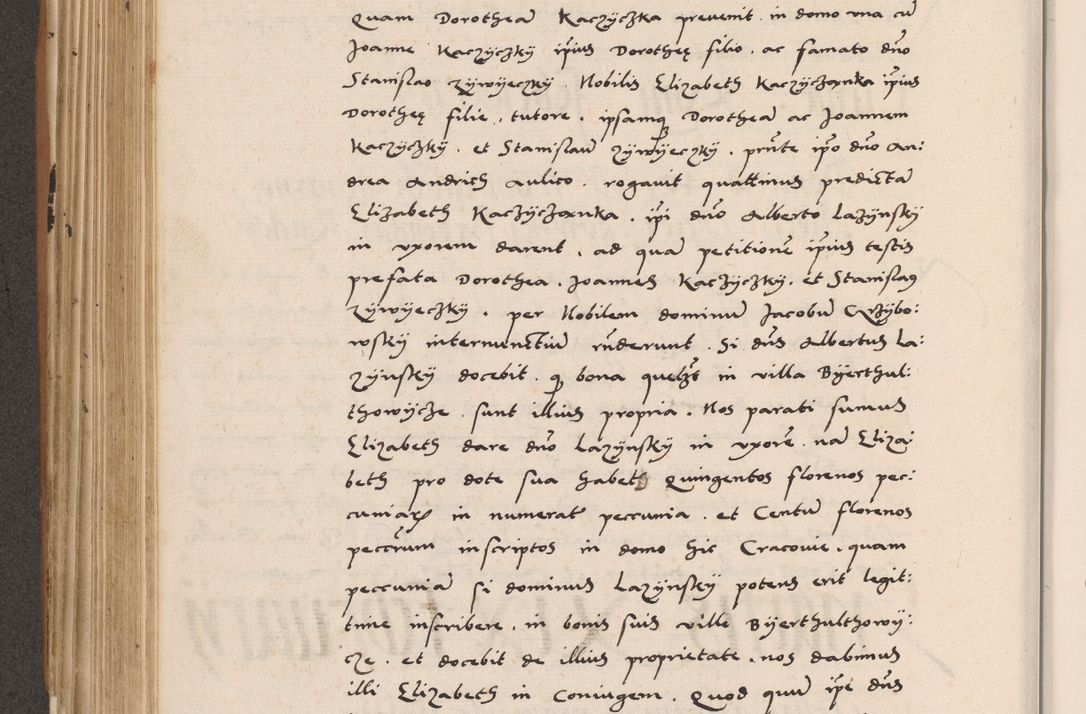 Quam Dorotheā Kaczÿczka prevenit. in domo vna cū
Joanne Kaczÿczkÿ ip̄ius Dorotheę filio, ac famato dn̄o
Stanislao Zÿwÿeczkÿ. Nobilis Elizabeth Kaczÿczanka ip̄ius
Dorotheę filie, tutore, ipsamq̨ Dorotheā ac Joannem
Kaczÿczkÿ. et Stanislaū Zÿwÿeczkÿ. prn̄te ip̄o dn̄o An:
drea Andrich Aulico. rogauit quattinus predictā
Elizabeth Kaczÿczanka. ip̄i dn̄o Alberto Lazÿnskÿ
in vxorem darent, ad quā petitionē ip̄ius testis
prefata Dorothea, Joannes Kaczÿczkÿ, et Stanislaꝰ
Zÿwÿeczkÿ, per Nobilem dominū Jacobū Grzÿbo:
wskÿ internunctiū rn̄derunt. Si dn̄s Albertus La:
zÿnskÿ docebit. q̨ bona in villa Bÿerthul:
thowÿcze. sunt illius propria. Nos parati sumus
Elizabeth dare dn̄o Lazÿnskÿ in vxorē. nā Eliza:
beth pro dote sua habet Quingentos florenos pec:
cuniaꝝ in numerata peccunia. et Centū florenos
peccn̄rum inscriptos in domo hic Cracovie, quam
peccuniā si dominus Lazÿnskÿ potens erit legit:
time inscribere, in bonis suis ville Bÿerthulthowÿ:
cze. et docebit de illius proprietate, nos dabimus
illi Elizabeth in Coniugem. Quod quū ip̄e dn̄s